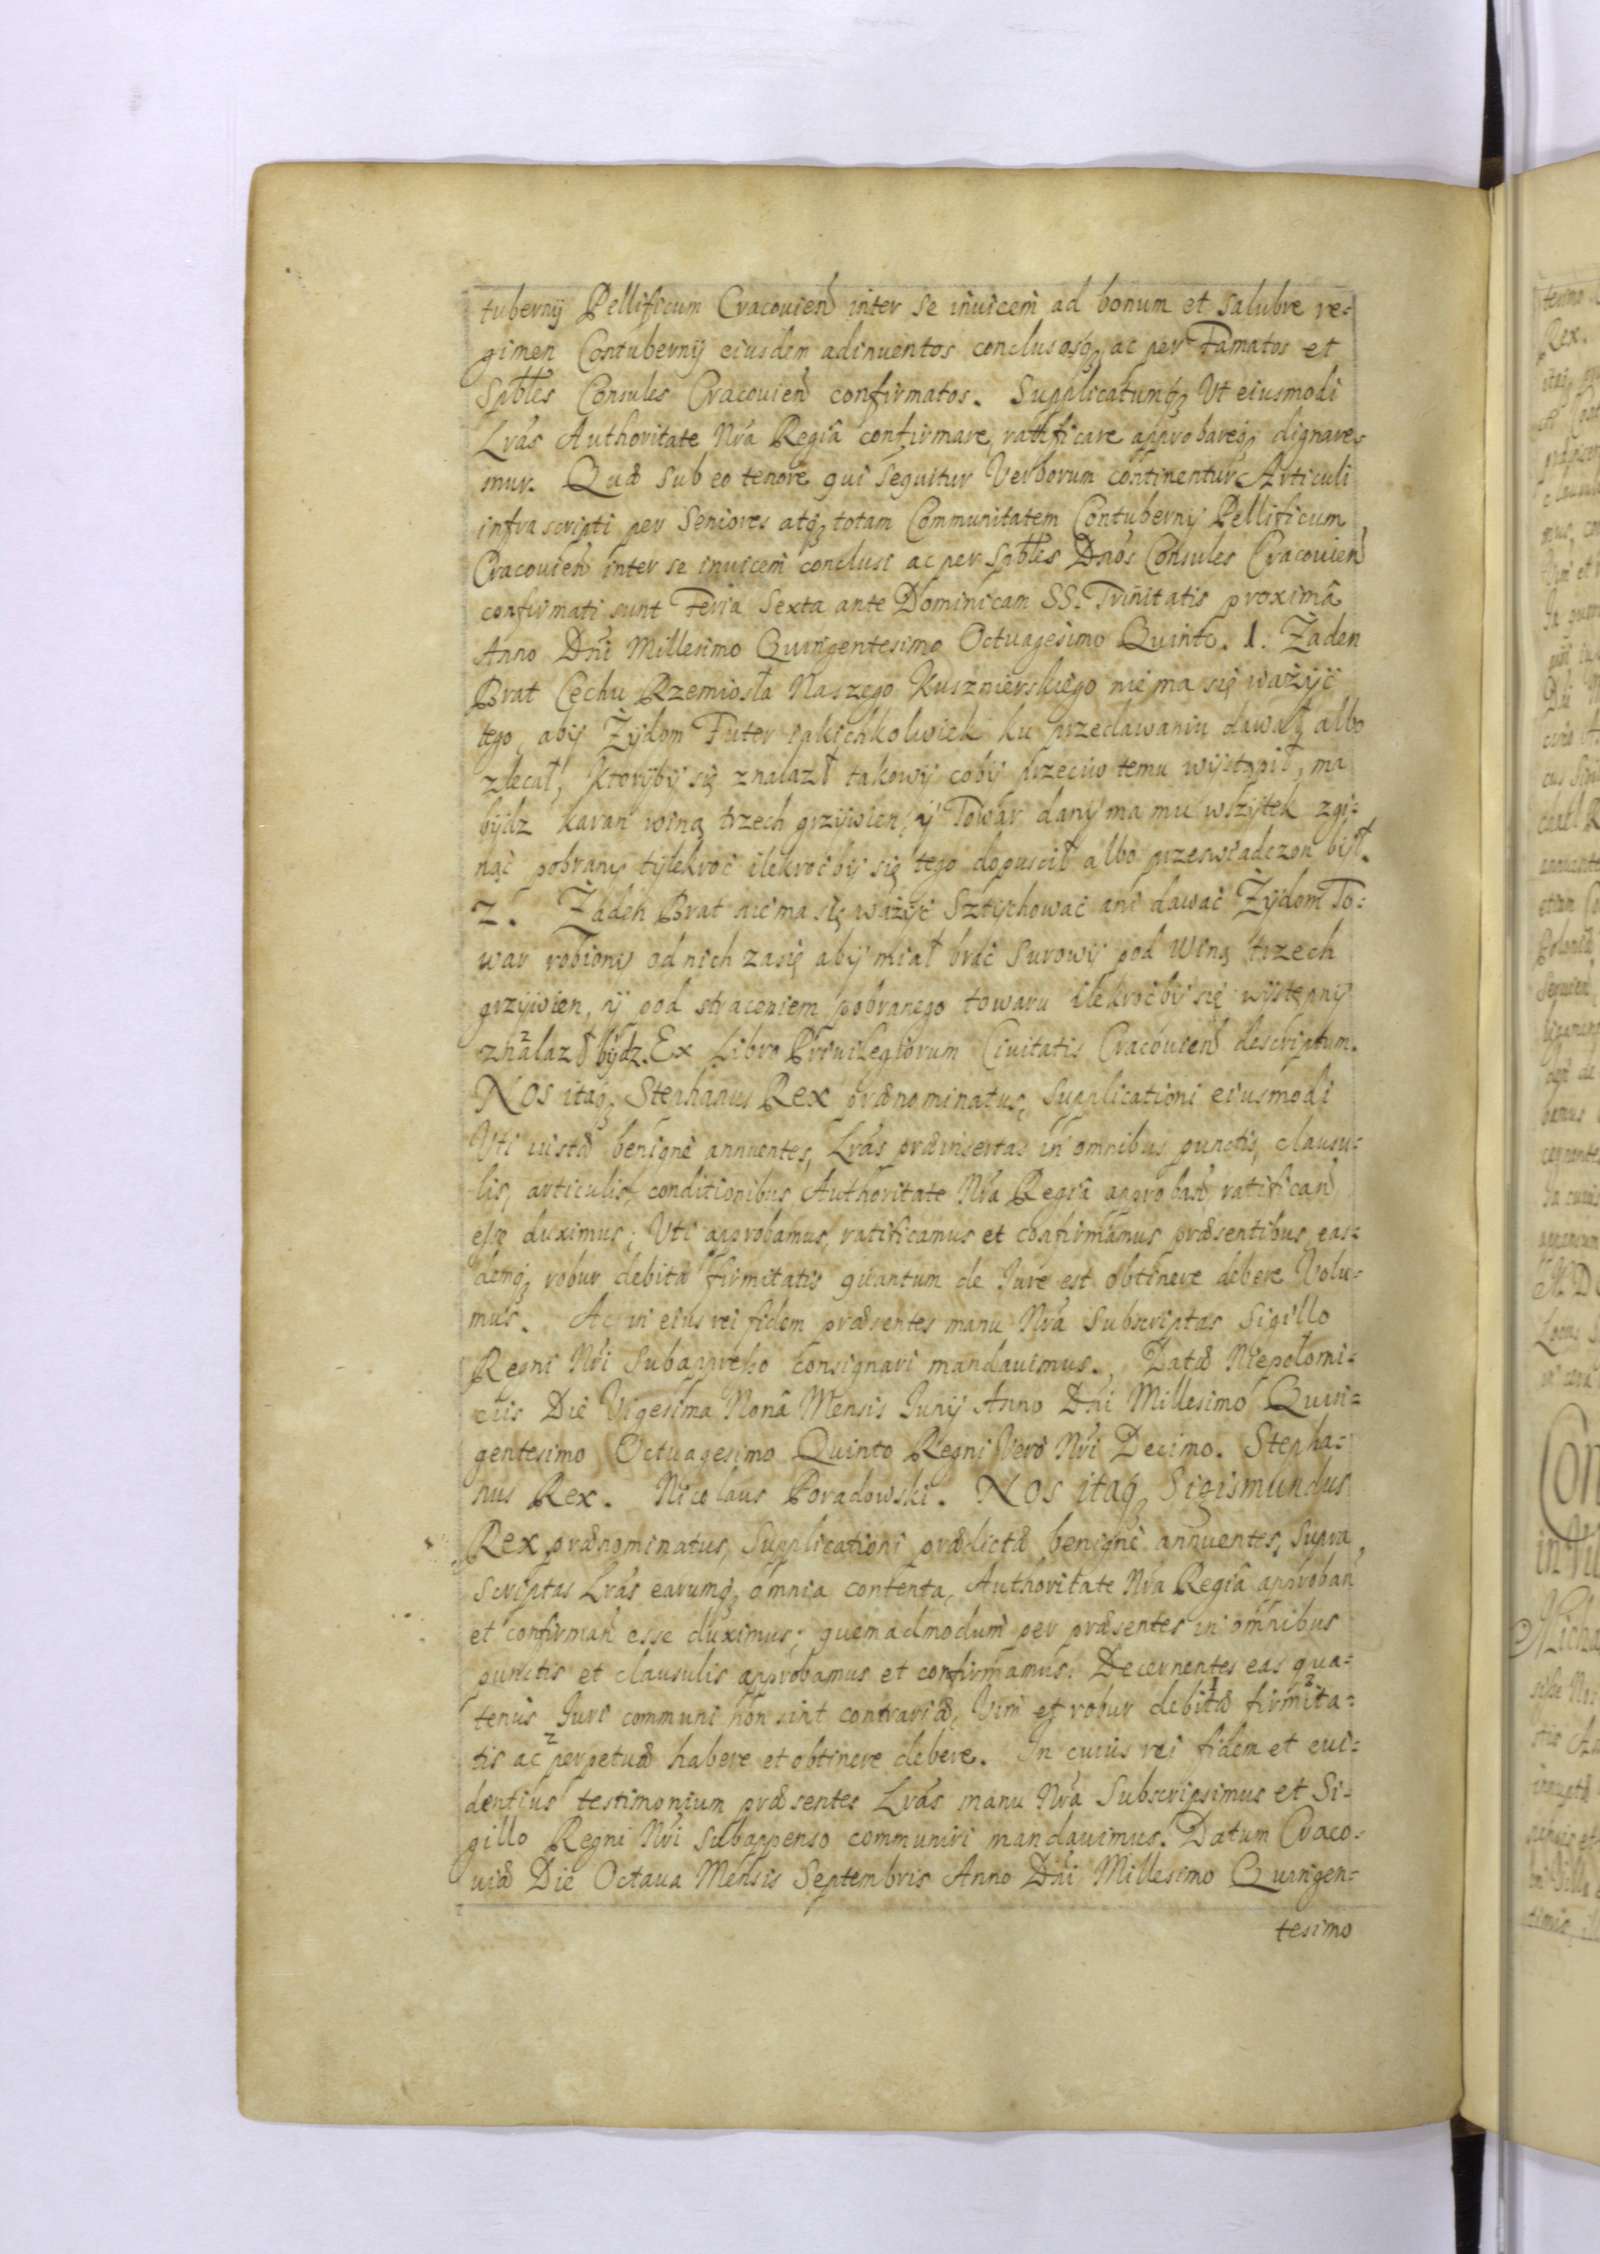 tubernij Pellificum Cracovien̄ inter se invicem ad bonum et salubre re=
gimen Contubernij eiusdem adinventos conclusosq; ac per Famatos et
Spbłes Consules Cracovien̄ confirmatos. Supplicatumq; Vt eiusmodi
Lrás Authoritate Nrá Regiâ confirmare, ratificare approbareq; dignare=
mur. Quæ sub eo tenore qui sequitur Verborum continentur Articuli
infra scripti per Seniores atq; totam Communitatem Contubernij Pellificum
Cracovien̄ inter se invicem conclusi ac per Spbłes Dnós Consules Cracovien̄
confirmati sunt Feria Sexta ante Dominicam SS. Trinitatis proximâ
Anno Dn̄i Millesimo Quingentesimo Octuagesimo Quinto. 1. Żaden
Brat Cechu Rzemiosła Naszego Kusznierskiego nie ma się ważyć
tego, aby Żydom Futer iakichkolwiek ku przedawaniu dawał albo
zlecał, ktoryby się znalazł takowy coby przeciwo temu wystąpił, ma
bydz karan winą trzech grzywien, y Towar dany ma mu wszytek zgi=
nąć pobrany tylekroć ilekroć by się tego dopuscił albo przeswiadczon był.
2. Żaden Brat nie ma się ważyć Sztychować ani dawać Żydom To=
war robiony od nich zasię aby miał brać Surowy pod winą trzech
grzywien, y pod straceniem pobranego towaru ilekroć by się występny
2 znalazł bydz. Ex Libro Privilegiorum Civitatis Cracovien̄ descriptum.
NOS itaq; Stephanus Rex prænominatus, Supplicationi eiusmodi
Vti iustæ benigne annuentes, Lrás præinsertas in omnibus punctis, clausu=
lis, articulis, conditionibus Authoritate Nrá Regiâ approban̄ ratifican̄
esse duximus; Vti approbamus, ratificamus et confirmamus præsentibus, eas=
demq; robur debitæ firmitatis quantum de Iure est obtinere debere Volu=
mus. Ac in eius rei fidem præsentes manu Nrá Subscriptas Sigillo
Regni Nrí Subappenso consignari mandavimus. Datæ Niepolomi=
ciis Die Vigesima Nonâ Mensis Iunij Anno Dn̄i Millesimo Quin=
gentesimo Octuagesimo Quinto Regni Vero Nrí Decimo. Stepha=
nus Rex. Nicolaus Poradowski. NOS itaq; Sigismundus
Rex prænominatus, Supplicationi prædictæ benigne annuentes, Supra
Scriptas Lrás earumq; omnia contenta, Authoritate Nrá Regiâ approban̄
et confirman̄ esse duximus; quemadmodum per præsentes in omnibus
punctis et clausulis approbamus et confirmamus. Decernentes eas qua=
tenus Iuri communi non sint contrariæ, Vim et robur debitæ firmita=
tis ac perpetuæ habere et obtinere debere. In cuius rei fidem et evi=
dentius testimonium præsentes Lrás manu Nrá Subscripsimus et Si=
gillo Regni Nrí Subappenso communiri mandavimus. Datum Craco=
viæ Die Octava Mensis Septembris Anno Dn̄i Millesimo Quingen=
tesimo